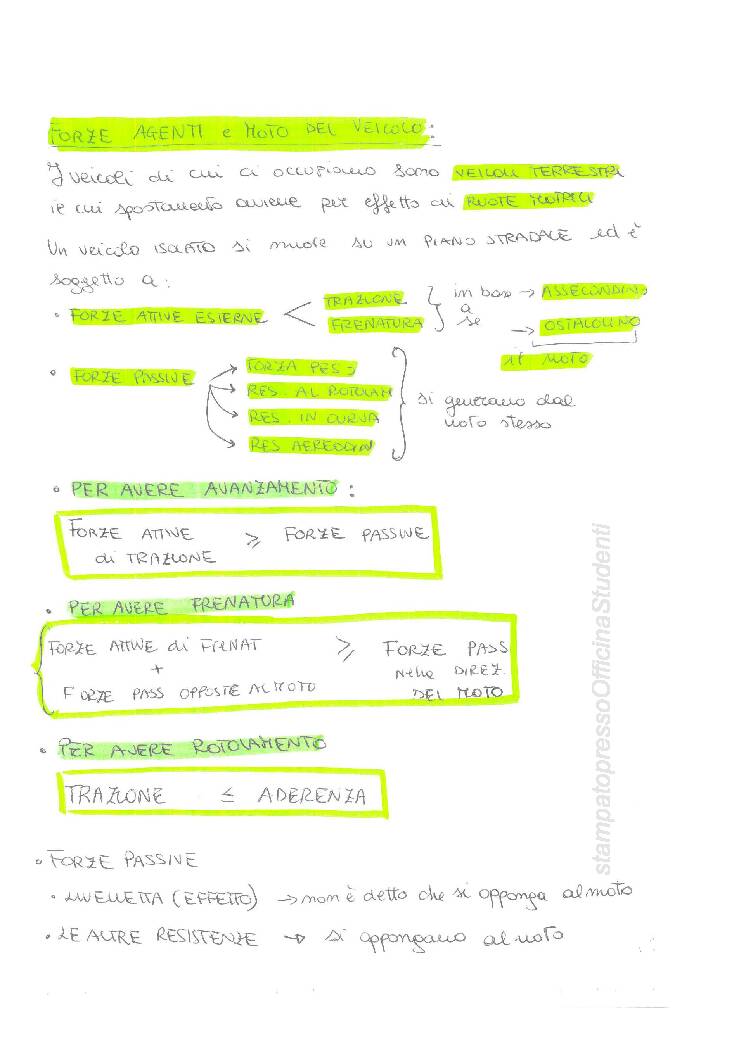 FORZE AGENTI e MOTO DEL VEICOLO:
I veicoli di cui ci occupiamo sono VEICOLI TERRESTRI
il cui spostamento avviene per effetto di RUOTE MOTRICI
Un veicolo ISOLATO si muove su un PIANO STRADALE ed è
soggetto a:
• FORZE ATTIVE ESTERNE < TRAZIONE
FRENATURA
in base → ASSECONDINO
a
se → OSTACOLINO
il MOTO
• FORZE PASSIVE → FORZA PESO
→ RES. AL ROTOLAM
→ RES. IN CURVA
→ RES AERODIN
si generano dal
moto stesso
• PER AVERE AVANZAMENTO:
FORZE ATTIVE ≥ FORZE PASSIVE
di TRAZIONE
• PER AVERE FRENATURA
FORZE ATTIVE di FRENAT ≥ FORZE PASS
+ nella DIREZ.
FORZE PASS OPPOSTE AL MOTO DEL MOTO
• PER AVERE ROTOLAMENTO
TRAZIONE ≤ ADERENZA
• FORZE PASSIVE
• LIVELLETTA (EFFETTO) → non è detto che si opponga al moto
• LE ALTRE RESISTENZE → si oppongano al moto
stampatopressoOfficinaStudenti